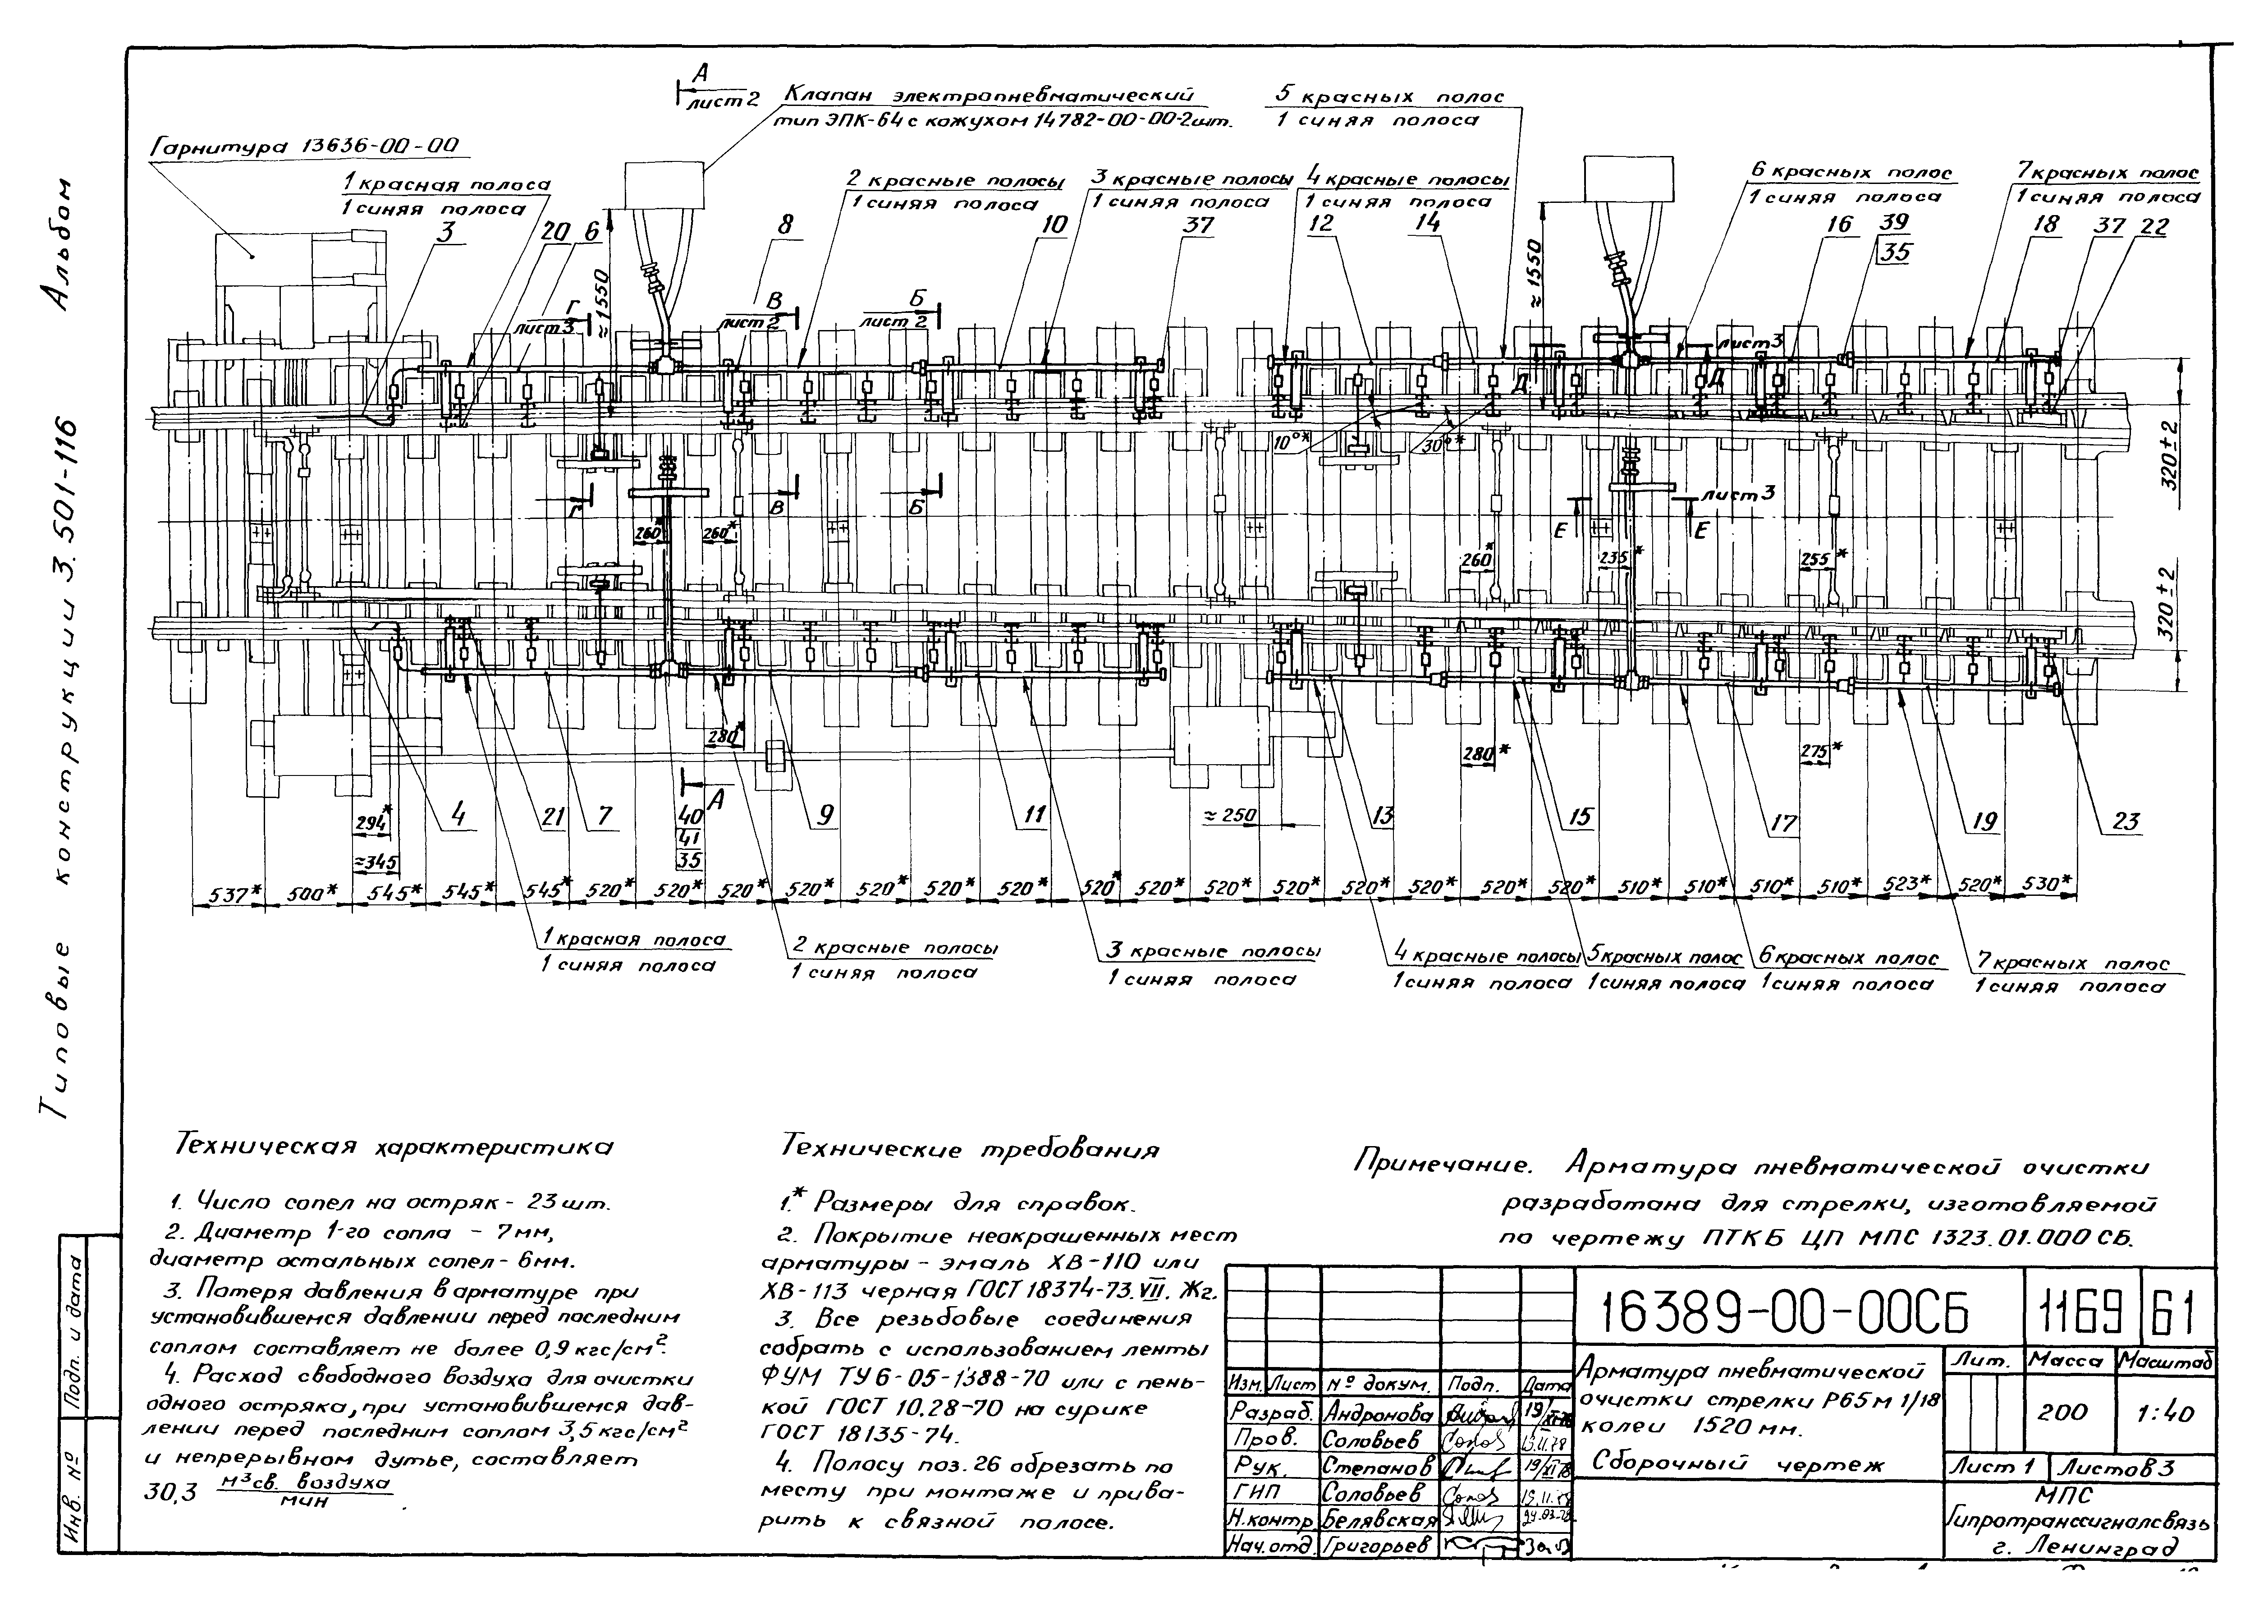 Типовые конструкции 3.501-116 Альбом
А
лист 2
Клапан электропневматический
тип ЭПК-64 с кожухом 14782-00-00-2шт.
5 красных полос
1 синяя полоса
Гарнитура 13636-00-00
1 красная полоса
1 синяя полоса
2 красные полосы
1 синяя полоса
3 красные полосы
1 синяя полоса
4 красные полосы
1 синяя полоса
6 красных полос
1 синяя полоса
7 красных полос
1 синяя полоса
3 20 6 8 10 37 12 14 16 39 18 37 22
35
≈1550 ≈1550
Г В Б
лист 3 лист 2 лист 2 лист 3
Д Д
10°* 30°*
320±2
лист 3
Г В Б Е Е
260* 260* 260* 235* 255*
320±2
280* 280* 275*
А
4 21 7 40 9 11 ≈250 13 15 17 19 23
294* 41
≈345 35
537* 500* 545* 545* 545* 520* 520* 520* 520* 520* 520* 520* 520* 520* 520* 520* 520* 520* 520* 520* 510* 510* 510* 510* 523* 520* 530*
1 красная полоса
1 синяя полоса
2 красные полосы
1 синяя полоса
3 красные полосы
1 синяя полоса
4 красные полосы
1 синяя полоса
5 красных полос
1 синяя полоса
6 красных полос
1 синяя полоса
7 красных полос
1 синяя полоса
Техническая характеристика
1. Число сопел на остряк - 23 шт.
2. Диаметр 1-го сопла - 7мм,
диаметр остальных сопел - 6мм.
3. Потеря давления в арматуре при
установившемся давлении перед последним
соплом составляет не более 0,9 кгс/см².
4. Расход свободного воздуха для очистки
одного остряка, при установившемся дав-
лении перед последним соплом 3,5 кгс/см²
и непрерывном дутье, составляет
30,3 м³св. воздуха
мин .
Технические требования
1.* Размеры для справок.
2. Покрытие неокрашенных мест
арматуры - эмаль ХВ-110 или
ХВ-113 черная ГОСТ 18374-73. VII. Жг.
3. Все резьбовые соединения
собрать с использованием ленты
ФУМ ТУ6-05-1388-70 или с пень-
кой ГОСТ 10.28-70 на сурике
ГОСТ 18135-74.
4. Полосу поз. 26 обрезать по
месту при монтаже и прива-
рить к связной полосе.
Примечание. Арматура пневматической очистки
разработана для стрелки, изготовляемой
по чертежу ПТКБ ЦП МПС 1323.01.000 СБ.
16389-00-00СБ 1169 61
Арматура пневматической
очистки стрелки Р65м 1/18
колеи 1520 мм.
Сборочный чертеж
Лит. Масса Масштаб
200 1:40
Лист 1 Листов 3
МПС
Гипротранссигналсвязь
г. Ленинград
Изм. Лист № докум. Подп. Дата
Разраб. Андронова
Пров. Соловьев
Рук. Степанов
ГИП Соловьев
Н.контр. Белявская
Нач.отд. Григорьев
Подп. и дата
Инв. №